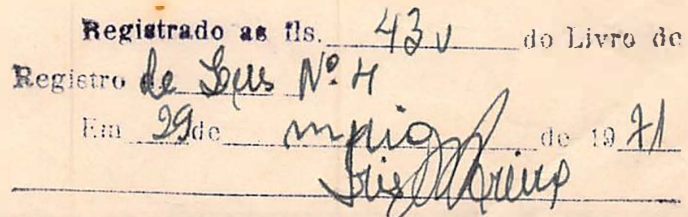 Registrado as fls. 43v do Livro de
Registro de Leis Nº 4
Em 29 de maio de 1971